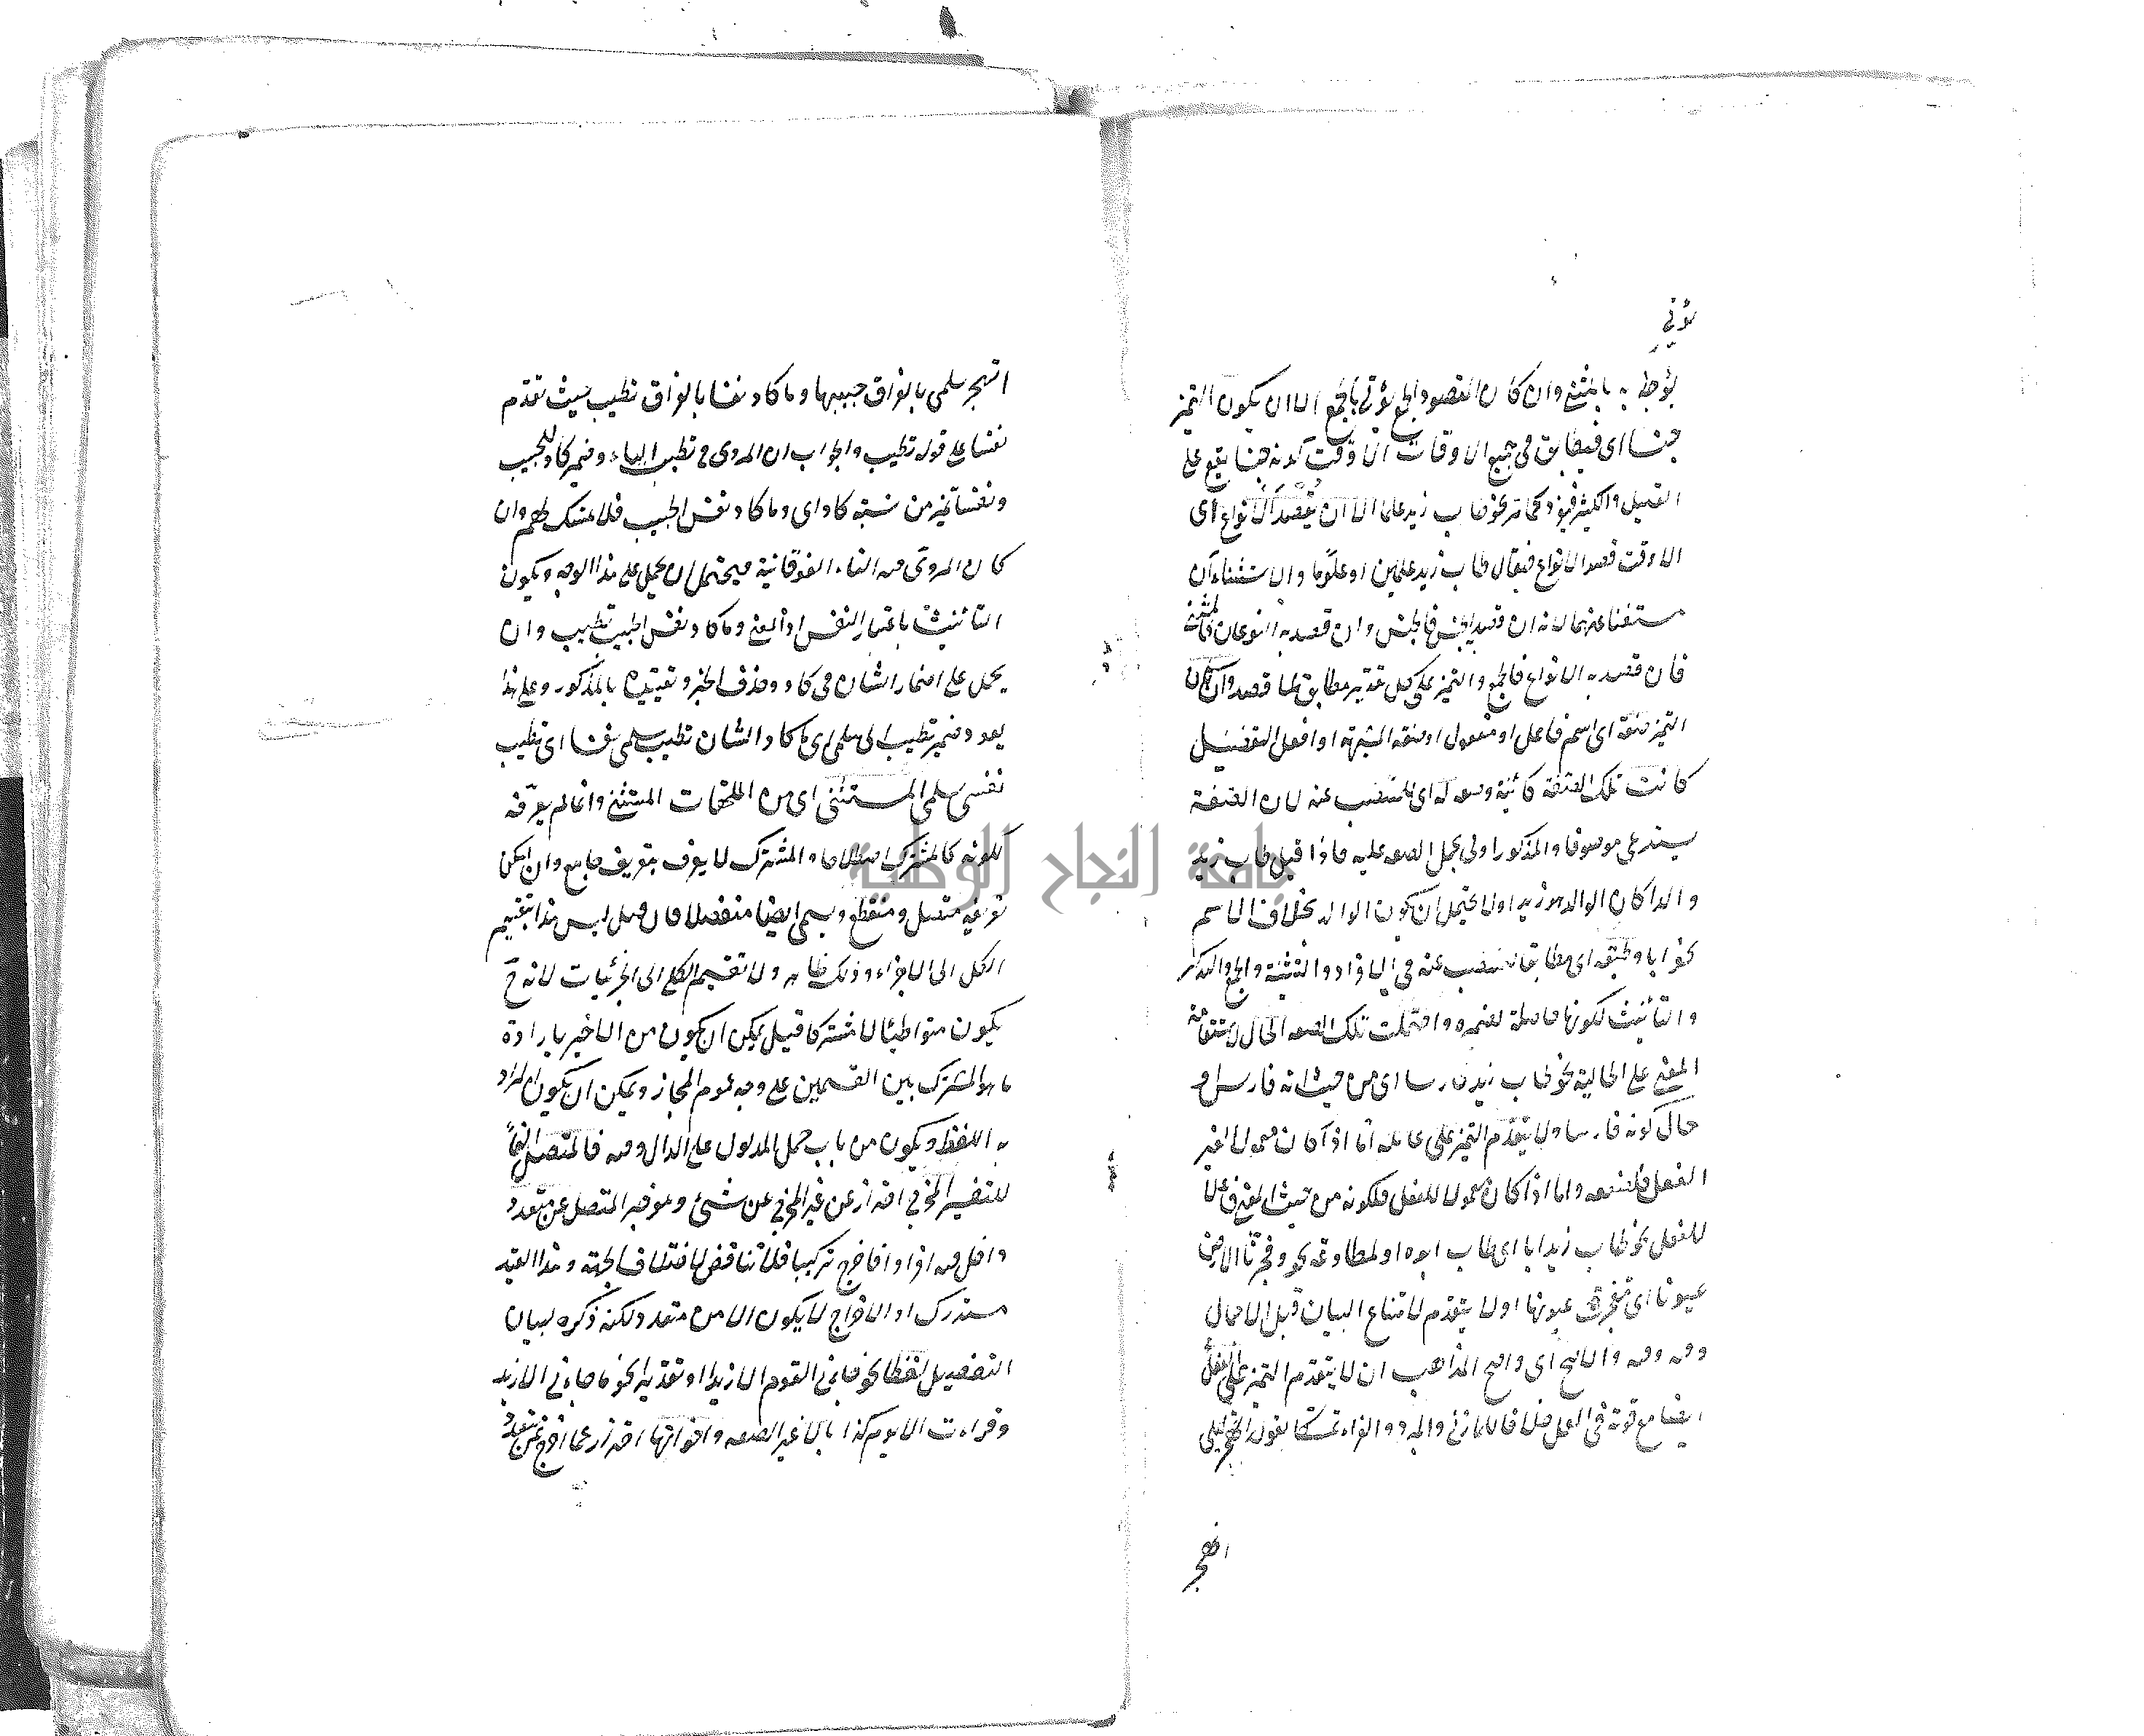 يؤتى
يؤتى به بالمثنى وان كان المقصود الجمع يؤتى بالجمع الا ان يكون التميز
جنسا اى فيطابق فى جميع الاوقات الا وقت كونه جنسا يقع على
القليل والكثير فيفرد كما تر نحو طاب زيد علما الا ان يقصد الانواع اى
الا وقت قصد الانواع فيقال طاب زيد علمين او علوما والاستثناء ان
مستغنا عنهما لانه ان قصد الجنس فالجنس وان قصد به النوعان فالمثنى
فان قصد به الانواع فالجمع والتميز على كل تقدير مطابق لما قصد وان كان
التميز صفة اى اسم فاعل او مفعول او صفة المشبهة او افعل التفضيل
كانت تلك الصفة كائنة وصفا له اى للمنتصب عنه لان الصفة
يستدعى موصوفا والمذكور اولى بجعل الصفه عليه فاذا قيل طاب زيد
والدا كان الوالد هو زيدا ولا يحتمل ان يكون الوالد بخلاف الاسم
نحو ابا وطبقه اى مطابقا للمنتصب عنه فى الافراد والتثنية والجمع والتذكير
والتانيث لكونها حاملة لضميره واحتملت تلك الصفه الحال لاستقامة
المعنى على الحالية نحو طاب زيد فارسا اى من حيث انه فارس او
حال كونه فارسا ولا يتقدم التميز على عامله اما اذا كان معمولا لغير
الفعل فلضعفه واما اذا كان معمولا للفعل فلكونه من حيث المعنى فاعلا
للفعل نحو طاب زيد ابا اى طاب ابوه او لمطاوعه نحو وفجرنا الارض
عيونا اى تفجرت عيونها اولا يتقدم لامتناع البيان قبل الاجمال
وفيه وفيه والاصح اى واصح المذاهب ان لا يتقدم التميز على الفعل
ايضا مع قوته فى العمل خلافا للمازنى والمبرد والفراء تمسكا بقوله اتهجر ليلى
اتهجر
اتهجر سلمى بالفراق حبيبها وما كاد نفسا بالفراق تطيب حيث تقدم
نفسا على قوله تطيب والجواب ان المروى فى تطيب الياء وضمير كاد للحبيب
ونفسا تميز من نسبة كاد اى وما كاد نفس الحبيب فلا تمسك لهم وان
كان المروى فيه التاء الفوقانية فيحتمل ان يحمل على هذا الوجه ويكون
التأنيث باعتبار النفس اذ المعنى وما كاد نفس الحبيب تطيب وان
يحمل على اضمار الشان فى كاد وحذف الخبر وتقييده بالمذكور وعلى هذا
يعود ضمير تطيب الى سلمى اى ما كاد الشان تطيب سلمى نفسا اى تطيب
نفس سلمى المستثنى اى من الملحقات المستثنى وانما لم يعرفه
لكونه كالمشترك اصطلاحا والمشترك لا يعرف بتعريف جامع وان امكن
تعريفه متصل ومنقطع ويسمى ايضا منفصلا فان قيل ليس هذا تقسيم
الكل الى الاجزاء وذلك ظاهر ولا تقسيم الكلى الى الجزئيات لانه ح
يكون متواطئا لا مشتركا قيل يمكن ان يكون من الاخير بارادة
ما هو المشترك بين القسمين على وجه عموم المجاز ويمكن ان يكون المراد
به اللفظ ويكون من باب حمل المدلول على الدال وفيه فالمتصل الفاء
للتفسير المخرج احتراز عن غير المخرج عن شئ وهو فيه المتصل عن متعدد
داخل فيه افرادا خارج تركيبا فلا تناقض لاختلاف الجهة وهذا القيد
مستدرك اذ الاخراج لا يكون الا من متعدد ولكنه ذكره لبيان
التفصيل لفظا نحو جاءنى القوم الا زيدا او تقديرا نحو ما جاءنى الا زيد
وقراءت الا يوم كذا بالا غير الصفه واخواتها احترز عما اخرج عن متعدد
جامعة النجاح الوطنية